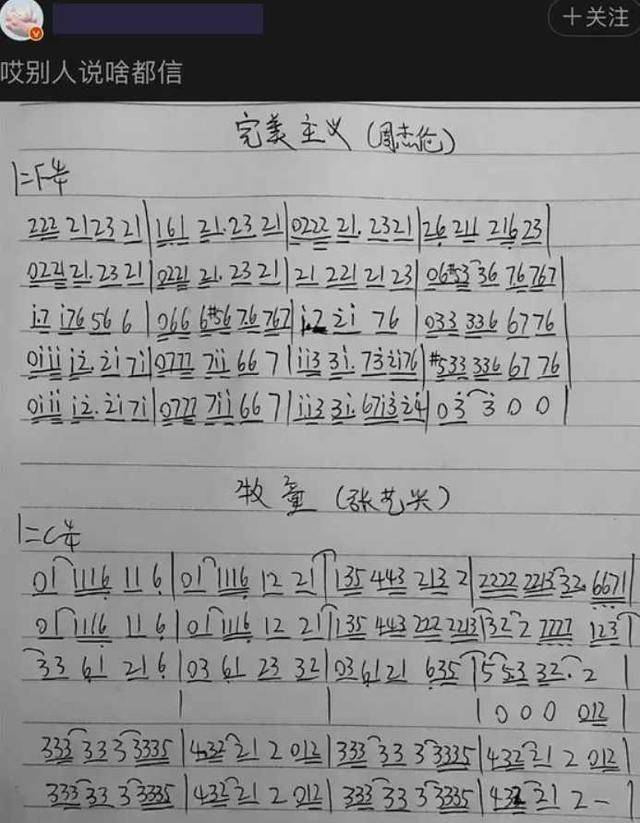 +关注
哎别人说啥都信
完美主义(周杰伦)
1=F 4/4
222 21 23 21|161 21.23 21|0222 21. 2321|26 211 216 23|
0221 21. 23 21|0221 21. 23 21|21 221 21 23|06#53 36 76 767|
i.7 i76 56 6|066 6#56 76 767|i.2 2i 76|033 336 67 76|
0iii i2. 2i 7i|0777 7ii 66 7|ii3 3i. 73 2i76|#533 336 67 76|
0iii i2. 2i 7i|0777 7ii 66 7|ii3 3i. 67i3 24|03 3 0 0|
牧童(张艺兴)
1=C 4/4
01 1116 11 6|01 1116 12 21|135 443 213 2|2222 2213 32. 6671|
01 1116 11 6|01 1116 12 21|135 443 222 2213|32 2 7777 123|
33 61 21 6|03 61 23 32|03 61 21 635|5 53 32. 2|
| | |0 0 0 012|
333 33 3 3335|432 21 2 012|333 33 3 3335|432 21 2 012|
333 33 3 3335|432 21 2 012|333 33 3 3335|432 21 2 -|